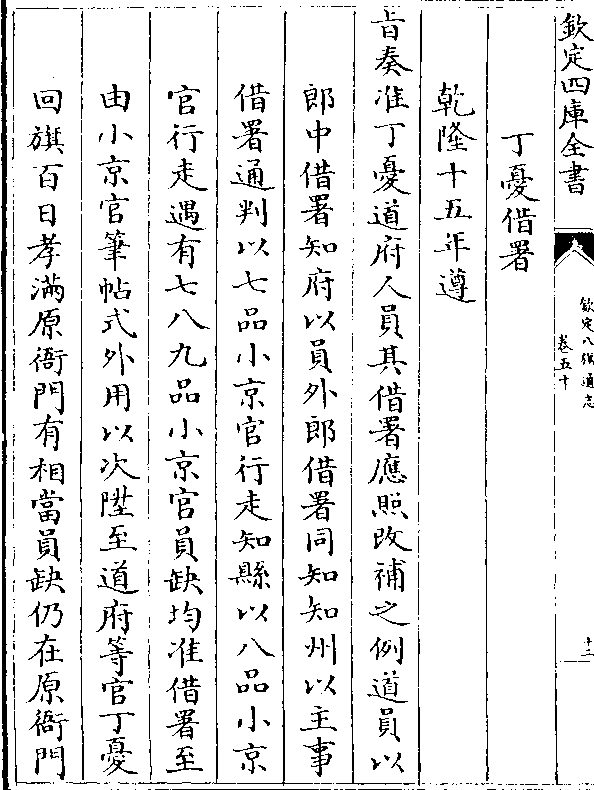 欽定四庫全書
欽定八旗通志
卷五十
十二
丁憂借署
乾隆十五年遵
旨奏准丁憂道府人員其借署應照改補之例道員以
郎中借署知府以員外郎借署同知知州以主事
借署通判以七品小京官行走知縣以八品小京
官行走遇有七八九品小京官員缺均准借署至
由小京官筆帖式外用以次陞至道府等官丁憂
回旗百日孝滿原衙門有相當員缺仍在原衙門